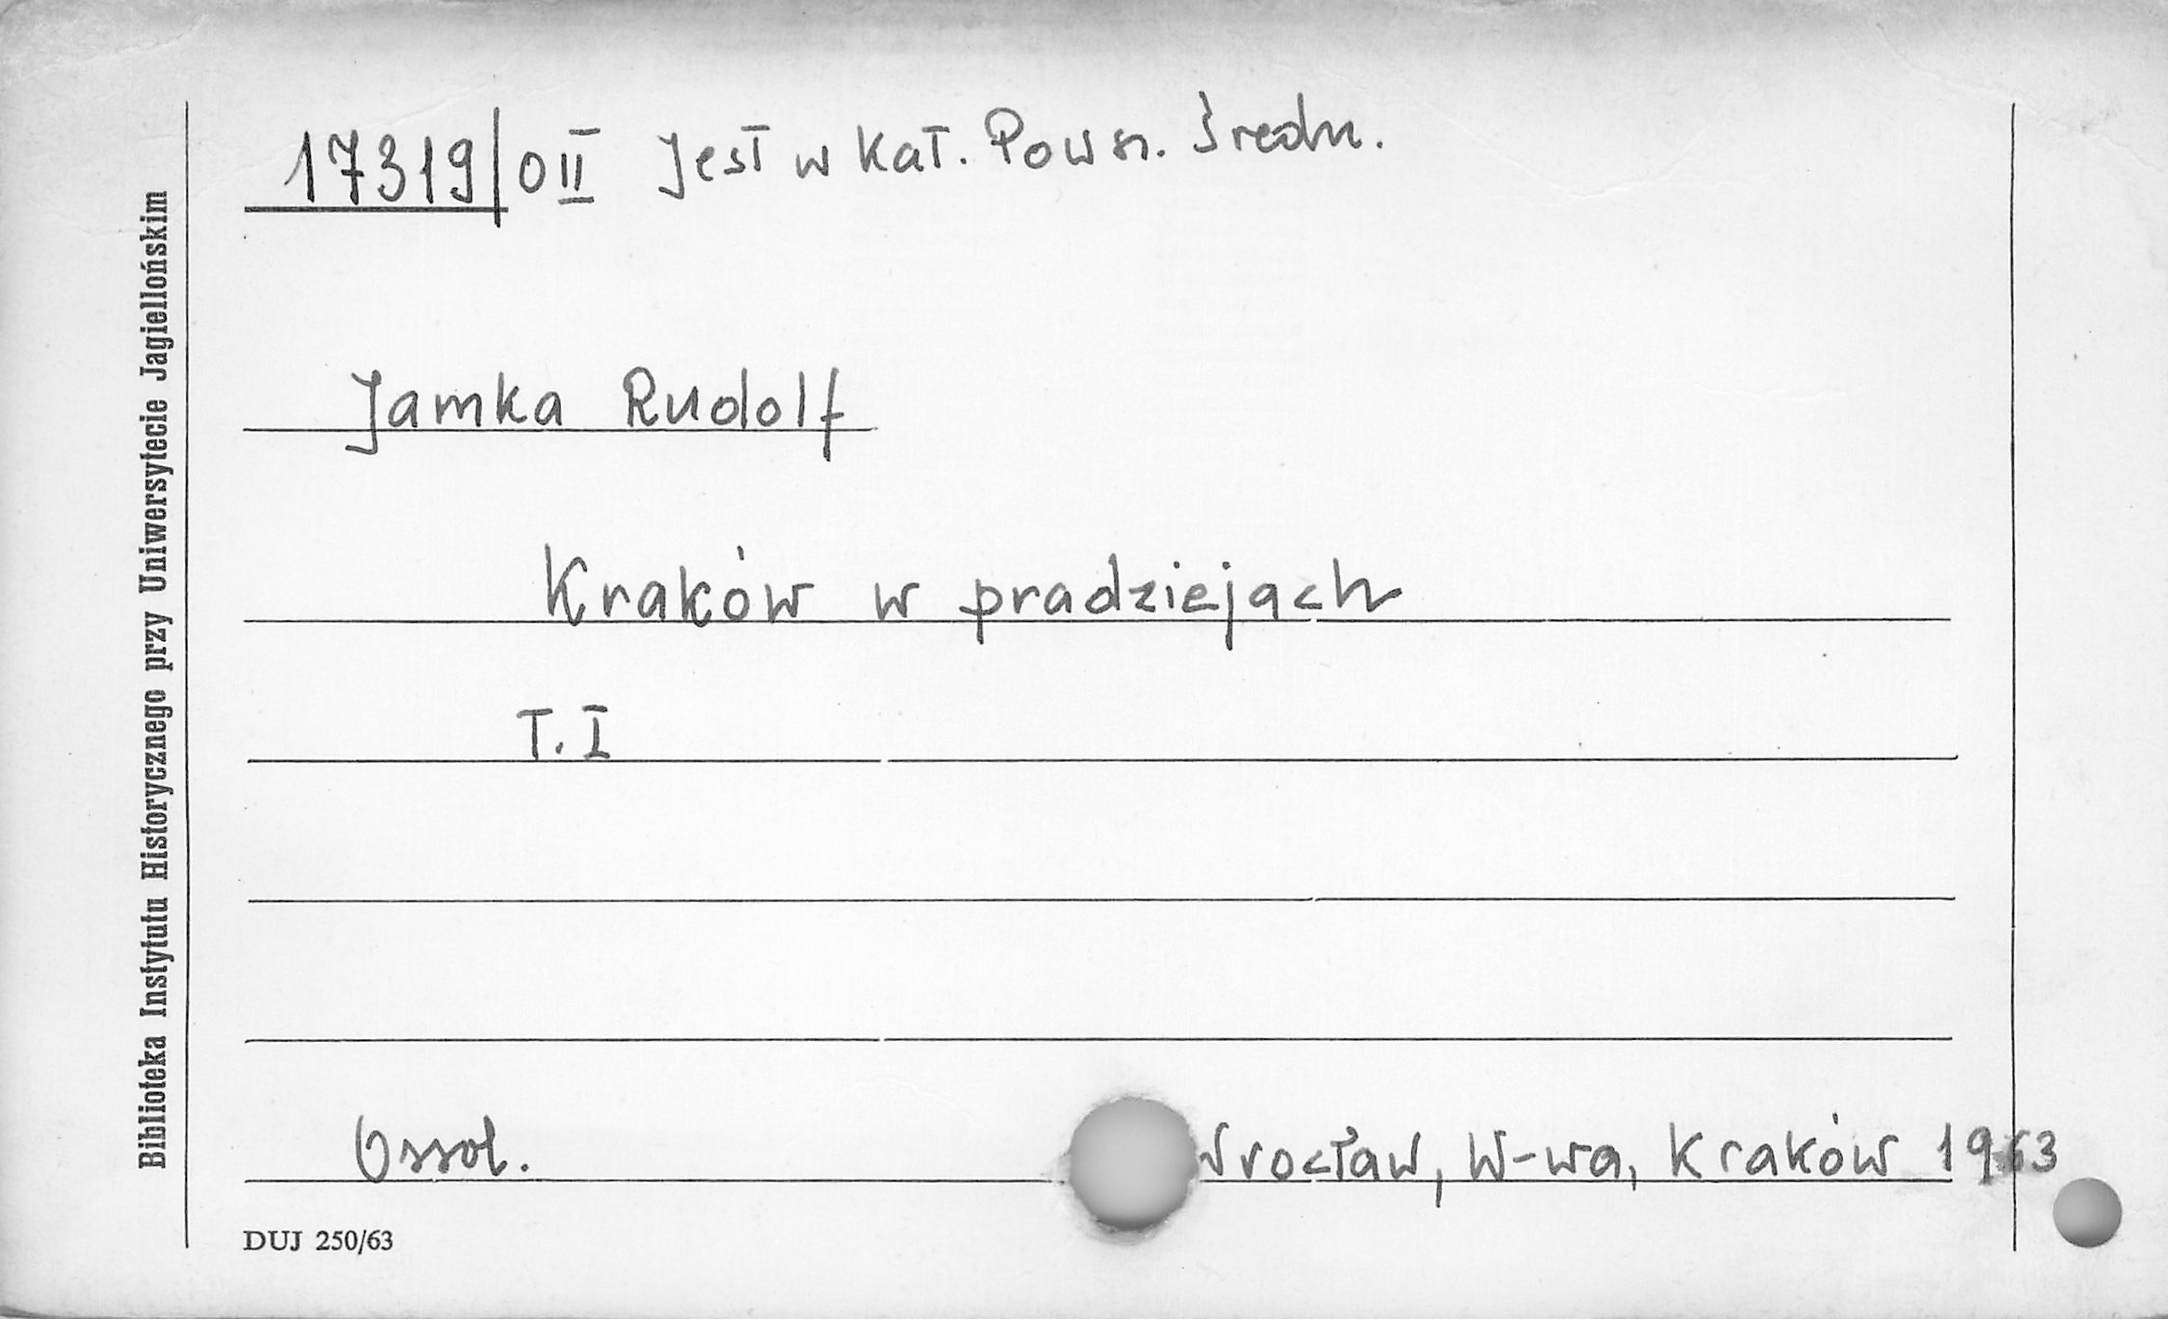 17319/0II Jest w kat. Powsz. Średn.
Biblioteka Instytutu Historycznego przy Uniwersytecie Jagiellońskim
Jamka Rudolf
Kraków w pradziejach
T. I
Ossol. Wrocław, W-wa, Kraków 1963
DUJ 250/63